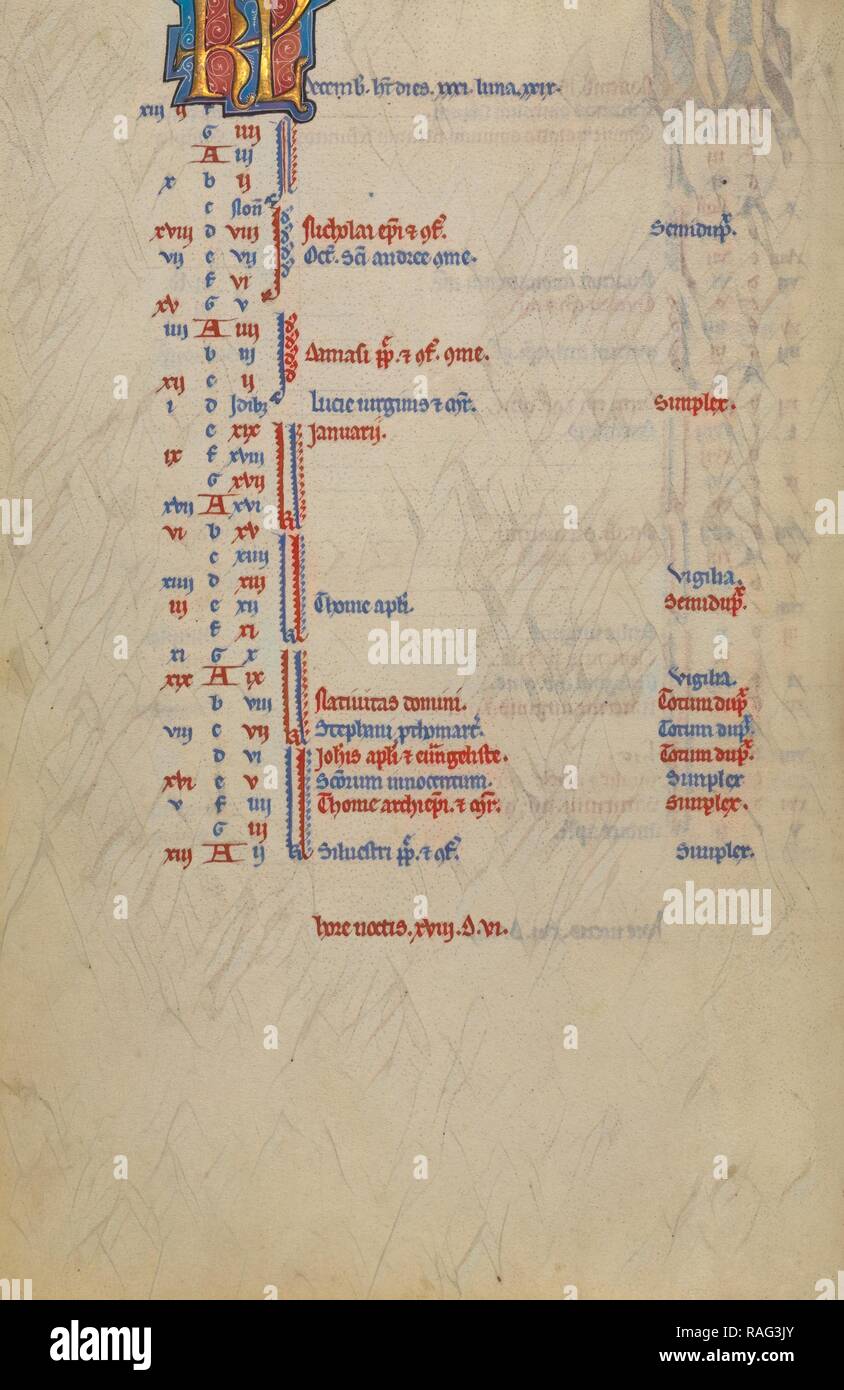 KL
Decemb. ht dies. xxxi. luna. xxix.
xiii f
G iiii
A iii
x b ii
c Non
xviii d viii Nicholai epi ⁊ cf. Semidup.
vii e vii Oct. Sci andree 9me.
f vi
xv G v
iiii A iiii
b iii Damasi pp. ⁊ cf. 9me.
xii c ii
i d Idibz Lucie uirginis ⁊ mr. Simplex.
e xix Januarii.
ix f xviii
G xvii
xvii A xvi
vi b xv
c xiiii
xiiii d xiii Vigilia.
iii e xii Thome apli. Semidup.
f xi
xi G x
xix A ix Vigilia.
b viii Natiuitas domini. Totum dup.
viii c vii Stephani pthomart. Totum dup.
d vi Johis apli ⁊ euungeliste. Totum dup.
xvi e v Scorum innocentum. Simplex
v f iiii Thome archiepi. ⁊ mr. Simplex.
G iii
xiii A ii Siluestri pp. ⁊ cf. Simplex.
hore noctis. xviii. D. vi.
alamy
Image ID: RAG3JY
www.alamy.com